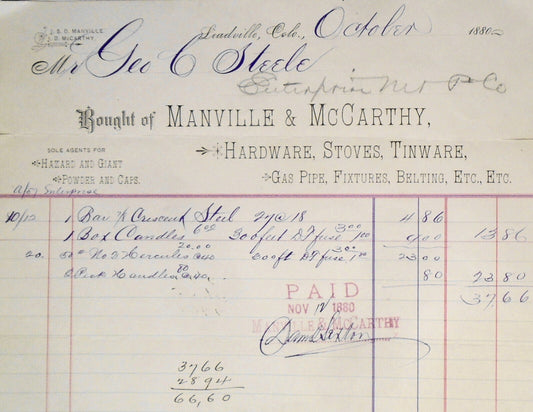 J. S. D. MANVILLE
J. D. MCCARTHY
Leadville, Colo., October 1880
Mr Geo C Steele
Enterprise Met Co
Bought of MANVILLE & MCCARTHY,
SOLE AGENTS FOR
HAZARD AND GIANT
POWDER AND CAPS.
HARDWARE, STOVES, TINWARE,
GAS PIPE, FIXTURES, BELTING, ETC., ETC.
a/c of Enterprise
10/12 1 Bar Crescent Steel 27@18 4 86
1 Box Candles 6.00 300 feet DT fuse 1.00 3.00 9.00 13 86
20. 50# No 2 Hercules 20.00 300 ft DT fuse 1.00 3.00 23 00
2 Pick Handles 80 80 23 80
37,66
PAID
NOV 12 1880
MANVILLE & MCCARTHY
Sexton
37 66
28 94
66,60